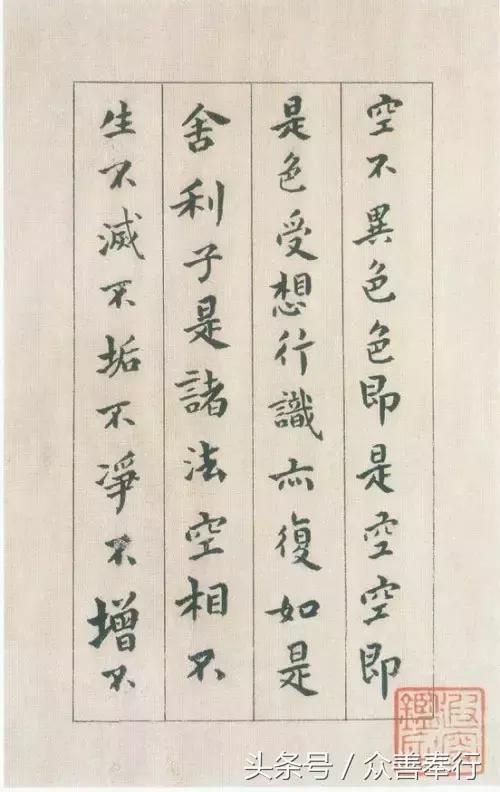 空不異色色即是空空即
是色受想行識亦復如是
舍利子是諸法空相不
生不滅不垢不淨不增不
头条号 / 众善奉行